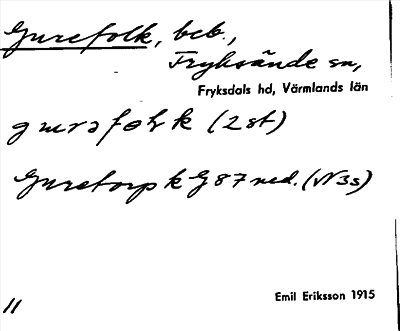 Gurefolk, beb.,
Fryksände sn,
Fryksdals hd, Värmlands län
(2 st)
Guretorp k G 87 ned. (N 3s)
Emil Eriksson 1915
11